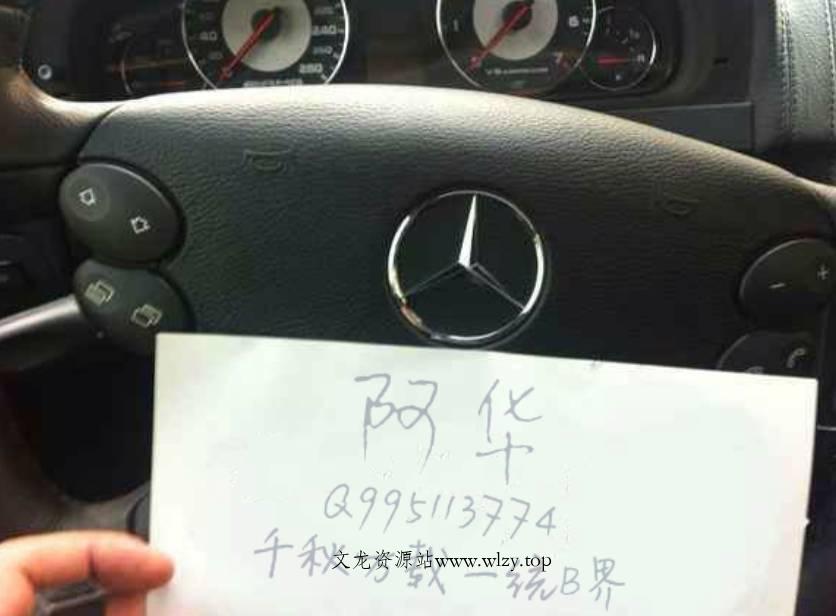 阿华
Q995113774
千秋万载一统B界
文龙资源站www.wlzy.top